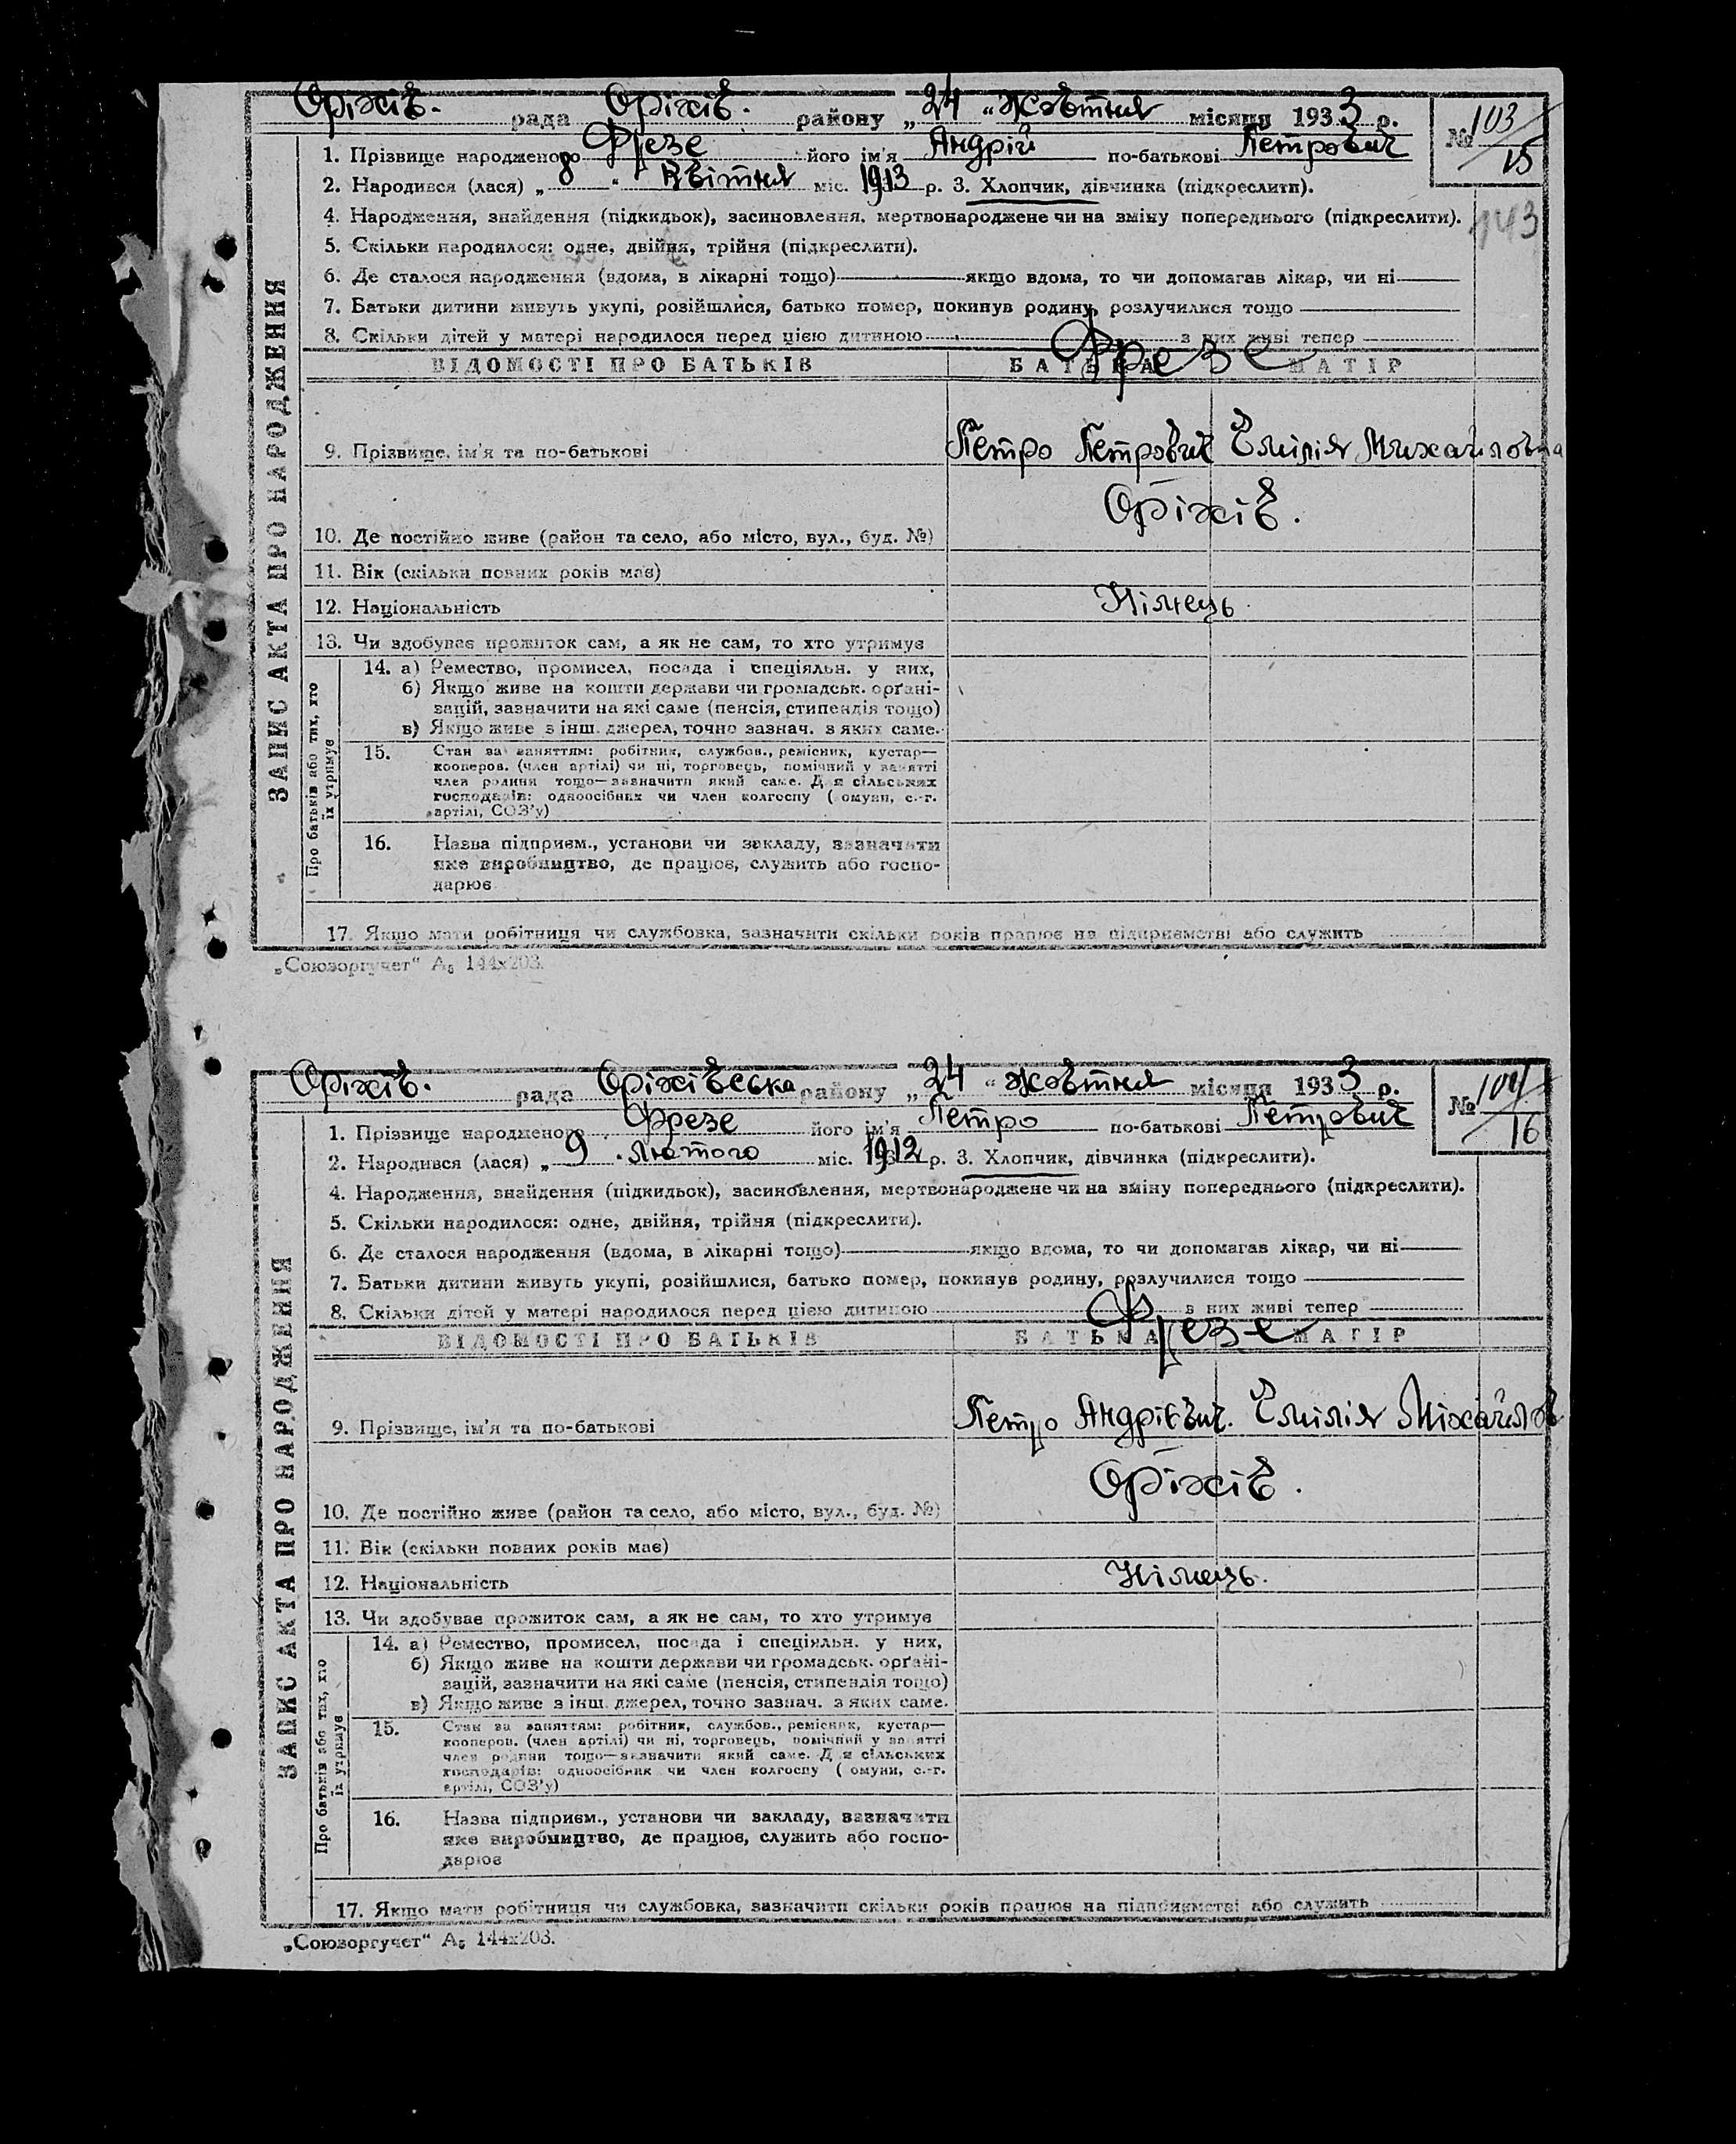 Оріхів. рада Оріхів. району „24" Жовтня місяця 1933 р.
№ 103/15
1. Прізвище народженого Фрезе його ім'я Андрій по-батькові Петрович
2. Народився (лася) „8" Квітня міс. 1913 р. 3. Хлопчик, дівчинка (підкреслити).
143
4. Народження, знайдення (підкидьок), засиновлення, мертвонароджене чи на зміну попереднього (підкреслити).
5. Скільки народилося: одне, двійня, трійня (підкреслити).
6. Де сталося народження (вдома, в лікарні тощо) якщо вдома, то чи допомагав лікар, чи ні
7. Батьки дитини живуть укупі, розійшлися, батько помер, покинув родину, розлучилися тощо
8. Скільки дітей у матері народилося перед цією дитиною з них живі тепер
ВІДОМОСТІ ПРО БАТЬКІВ БАТЬКА МАТІР
Фрезе
9. Прізвище, ім'я та по-батькові Петро Петрович Емілія Михайловна
10. Де постійно живе (район та село, або місто, вул., буд. №) Оріхів.
11. Вік (скільки повних років має)
12. Національність Німець.
13. Чи здобуває прожиток сам, а як не сам, то хто утримує
14. а) Ремество, промисел, посада і спеціяльн. у них,
б) Якщо живе на кошти держави чи громадськ. орґані-
зацій, зазначити на які саме (пенсія, стипендія тощо)
в) Якщо живе з інш. джерел, точно зазнач. з яких саме.
15. Стан за заняттям: робітник, службов., ремісник, кустар—
кооперов. (член артілі) чи ні, торговець, помічний у занятті
член родини тощо—зазначити який саме. Д я сільських
господарів: одноосібник чи член колгоспу ( омуни, с.-г.
артілі, СОЗ'у)
16. Назва підприєм., установи чи закладу, зазначити
яке виробництво, де працює, служить або госпо-
дарює
17. Якщо мати робітниця чи службовка, зазначити скільки років працює на підприємстві або служить
ЗАПИС АКТА ПРО НАРОДЖЕННЯ
Про батьків або тих, хто
їх утримує
„Союзоргучет" А₅ 144х203.
Оріхів. рада Оріхівська району „24" жовтня місяця 1933 р.
№ 104/16
1. Прізвище народженого Фрезе його ім'я Петро по-батькові Петрович
2. Народився (лася) „9 лютого міс. 1912 р. 3. Хлопчик, дівчинка (підкреслити).
4. Народження, знайдення (підкидьок), засиновлення, мертвонароджене чи на зміну попереднього (підкреслити).
5. Скільки народилося: одне, двійня, трійня (підкреслити).
6. Де сталося народження (вдома, в лікарні тощо) якщо вдома, то чи допомагав лікар, чи ні
7. Батьки дитини живуть укупі, розійшлися, батько помер, покинув родину, розлучилися тощо
8. Скільки дітей у матері народилося перед цією дитиною з них живі тепер
ВІДОМОСТІ ПРО БАТЬКІВ БАТЬКА МАТІР
Фрезе
9. Прізвище, ім'я та по-батькові Петро Андрієвич. Емілія Міхайлов
10. Де постійно живе (район та село, або місто, вул., буд. №) Оріхів.
11. Вік (скільки повних років має)
12. Національність Німець.
13. Чи здобуває прожиток сам, а як не сам, то хто утримує
14. а) Ремество, промисел, посада і спеціяльн. у них,
б) Якщо живе на кошти держави чи громадськ. орґані-
зацій, зазначити на які саме (пенсія, стипендія тощо)
в) Якщо живе з інш. джерел, точно зазнач. з яких саме.
15. Стан за заняттям: робітник, службов., ремісник, кустар—
кооперов. (член артілі) чи ні, торговець, помічний у занятті
член родини тощо—зазначити який саме. Д я сільських
господарів: одноосібник чи член колгоспу ( омуни, с.-г.
артілі, СОЗ'у)
16. Назва підприєм., установи чи закладу, зазначити
яке виробництво, де працює, служить або госпо-
дарює
17. Якщо мати робітниця чи службовка, зазначити скільки років працює на підприємстві або служить
ЗАПИС АКТА ПРО НАРОДЖЕННЯ
Про батьків або тих, хто
їх утримує
„Союзоргучет" А₅ 144х203.